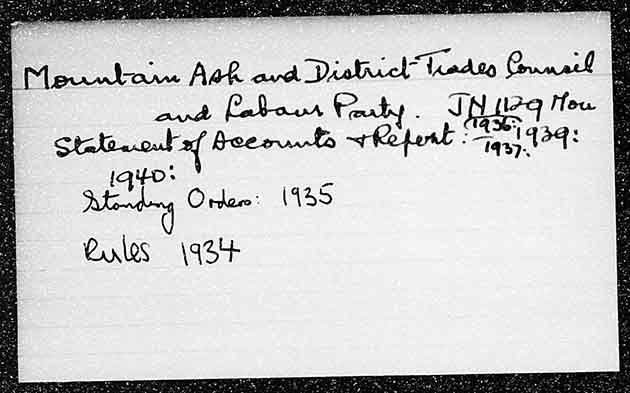 Mountain Ash and District Trades Council
and Labour Party. JN 1129 Mou
Statement of Accounts & Report: 1936: 1937: 1939:
1940:
Standing Orders: 1935
Rules 1934